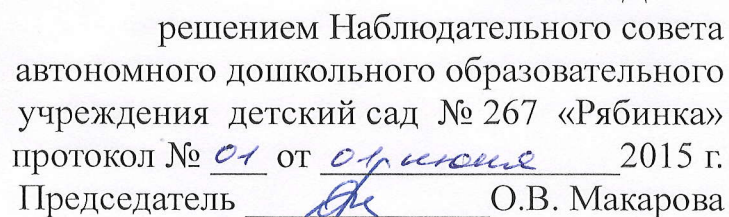 решением Наблюдательного совета
автономного дошкольного образовательного
учреждения детский сад № 267 «Рябинка»
протокол № 01 от 01 июня 2015 г.
Председатель О.В. Макарова